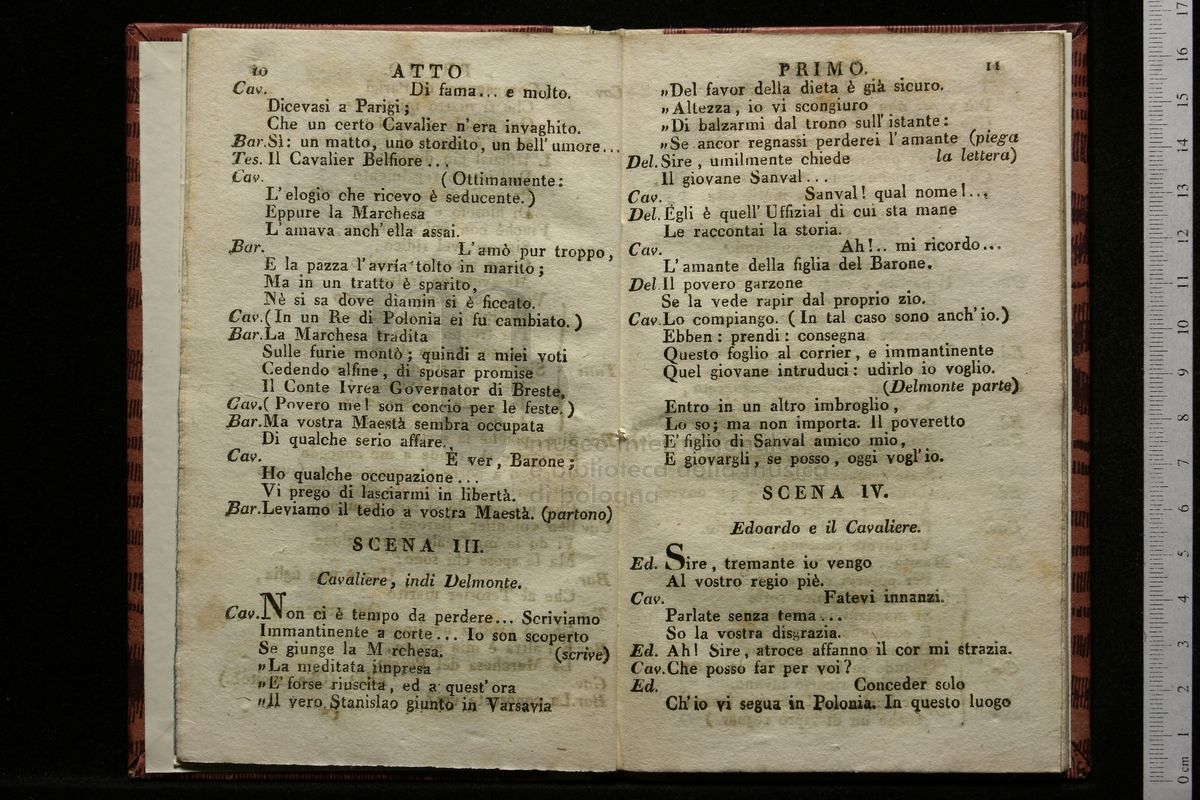 10 ATTO
Cav. Di fama... e molto.
Dicevasi a Parigi;
Che un certo Cavalier n'era invaghito.
Bar. Sì: un matto, uno stordito, un bell' umore...
Tes. Il Cavalier Belfiore...
Cav. (Ottimamente:
L'elogio che ricevo è seducente.)
Eppure la Marchesa
L'amava anch'ella assai.
Bar. L'amò pur troppo,
E la pazza l'avría tolto in marito;
Ma in un tratto è sparito,
Nè si sa dove diamin si è ficcato.
Cav. (In un Re di Polonia ei fu cambiato.)
Bar. La Marchesa tradita
Sulle furie montò; quindi a miei voti
Cedendo alfine, di sposar promise
Il Conte Ivrea Governator di Breste,
Cav. (Povero me! son concio per le feste.)
Bar. Ma vostra Maestà sembra occupata
Di qualche serio affare..
Cav. È ver, Barone;
Ho qualche occupazione...
Vi prego di lasciarmi in libertà.
Bar. Leviamo il tedio a vostra Maestà. (partono)
SCENA III.
Cavaliere, indi Delmonte.
Cav. Non ci è tempo da perdere... Scriviamo
Immantinente a corte... Io son scoperto
Se giunge la M rchesa. (scrive)
„La meditata impresa
„E' forse riuscita, ed a quest'ora
„Il vero Stanislao giunto in Varsavia
PRIMO. 11
„Del favor della dieta è già sicuro.
„Altezza, io vi scongiuro
„Di balzarmi dal trono sull'istante:
„Se ancor regnassi perderei l'amante (piega
Del. Sire, umilmente chiede la lettera)
Il giovane Sanval...
Cav. Sanval! qual nome!...
Del. Egli è quell' Uffizial di cui sta mane
Le raccontai la storia.
Cav. Ah!.. mi ricordo...
L'amante della figlia del Barone.
Del Il povero garzone
Se la vede rapir dal proprio zio.
Cav. Lo compiango. (In tal caso sono anch'io.)
Ebben: prendi: consegna
Questo foglio al corrier, e immantinente
Quel giovane intruduci: udirlo io voglio.
(Delmonte parte)
Entro in un altro imbroglio,
Lo so; ma non importa. Il poveretto
E' figlio di Sanval amico mio,
E giovargli, se posso, oggi vogl'io.
SCENA IV.
Edoardo e il Cavaliere.
Ed. Sire, tremante io vengo
Al vostro regio piè.
Cav. Fatevi innanzi.
Parlate senza tema...
So la vostra disgrazia.
Ed. Ah! Sire, atroce affanno il cor mi strazia.
Cav. Che posso far per voi?
Ed. Conceder solo
Ch'io vi segua in Polonia. In questo luogo
museo inter
biblioteca della musica
di bologna
0 cm 1 2 3 4 5 6 7 8 9 10 11 12 13 14 15 16 17